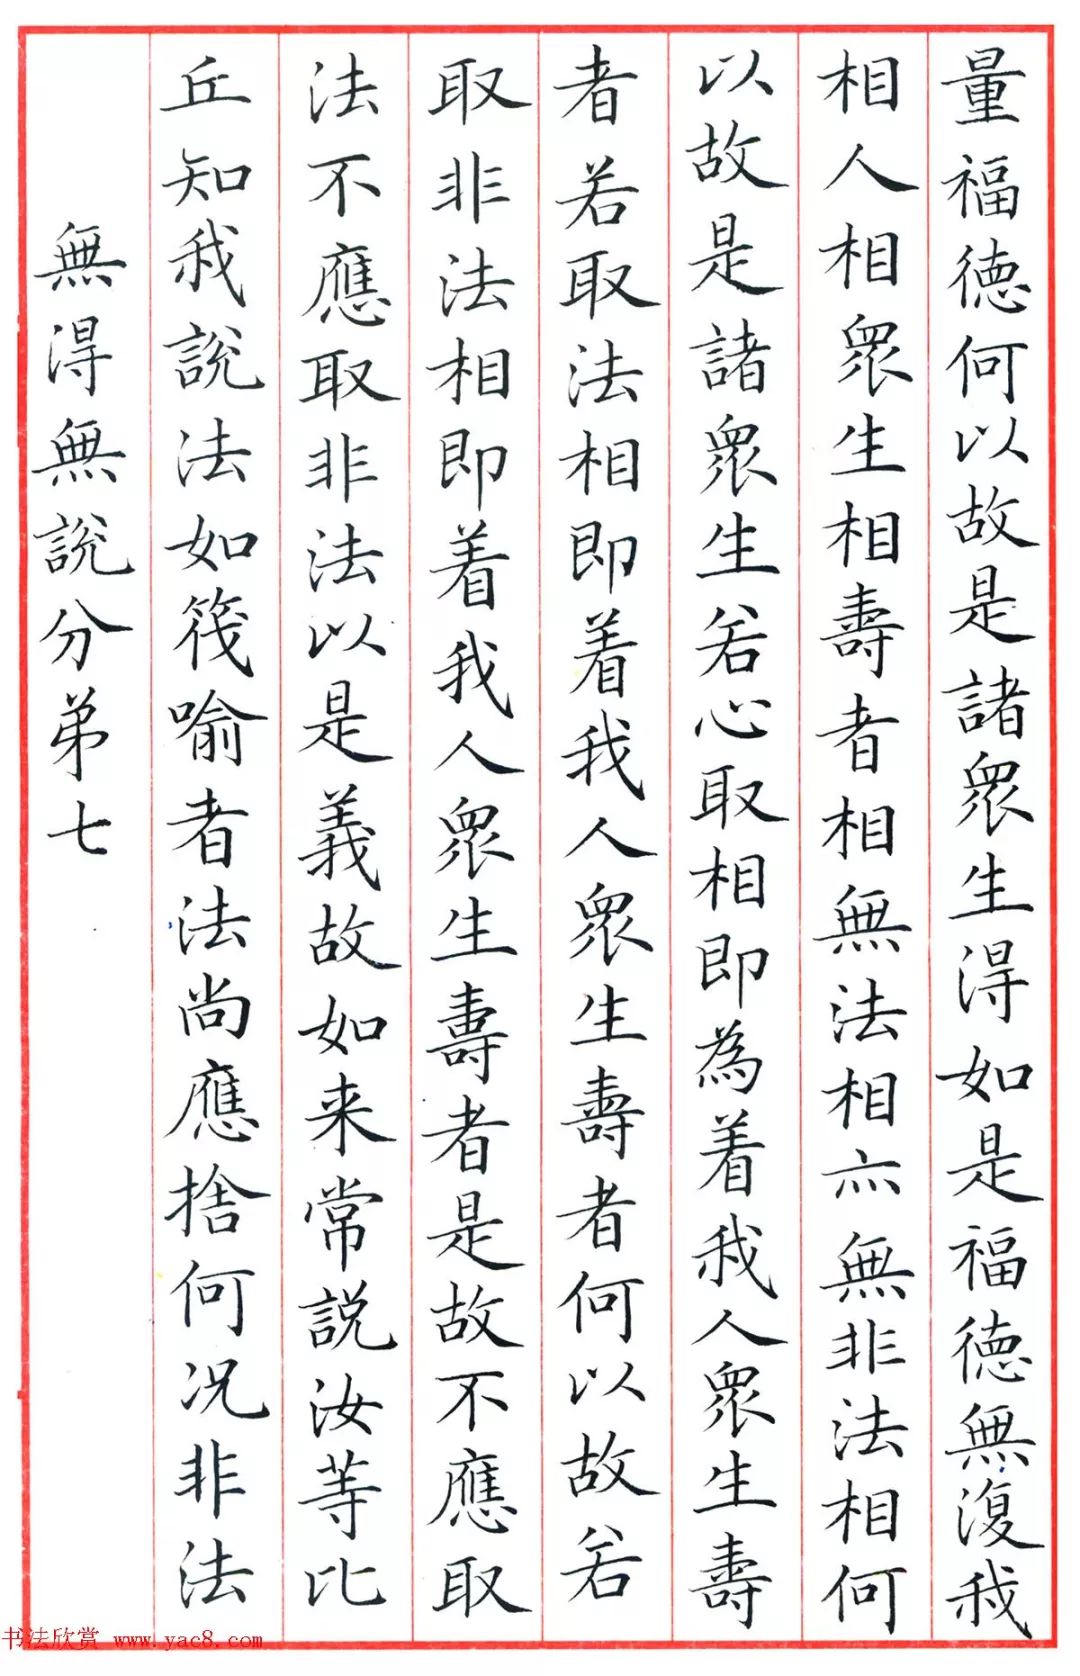 量福德何以故是諸眾生得如是福德無復我
相人相眾生相壽者相無法相亦無非法相何
以故是諸眾生若心取相即為着我人眾生壽
者若取法相即着我人眾生壽者何以故若
取非法相即着我人眾生壽者是故不應取
法不應取非法以是義故如来常説汝等比
丘知我説法如筏喻者法尚應捨何況非法
無得無説分弟七
书法欣赏 www.yac8.com